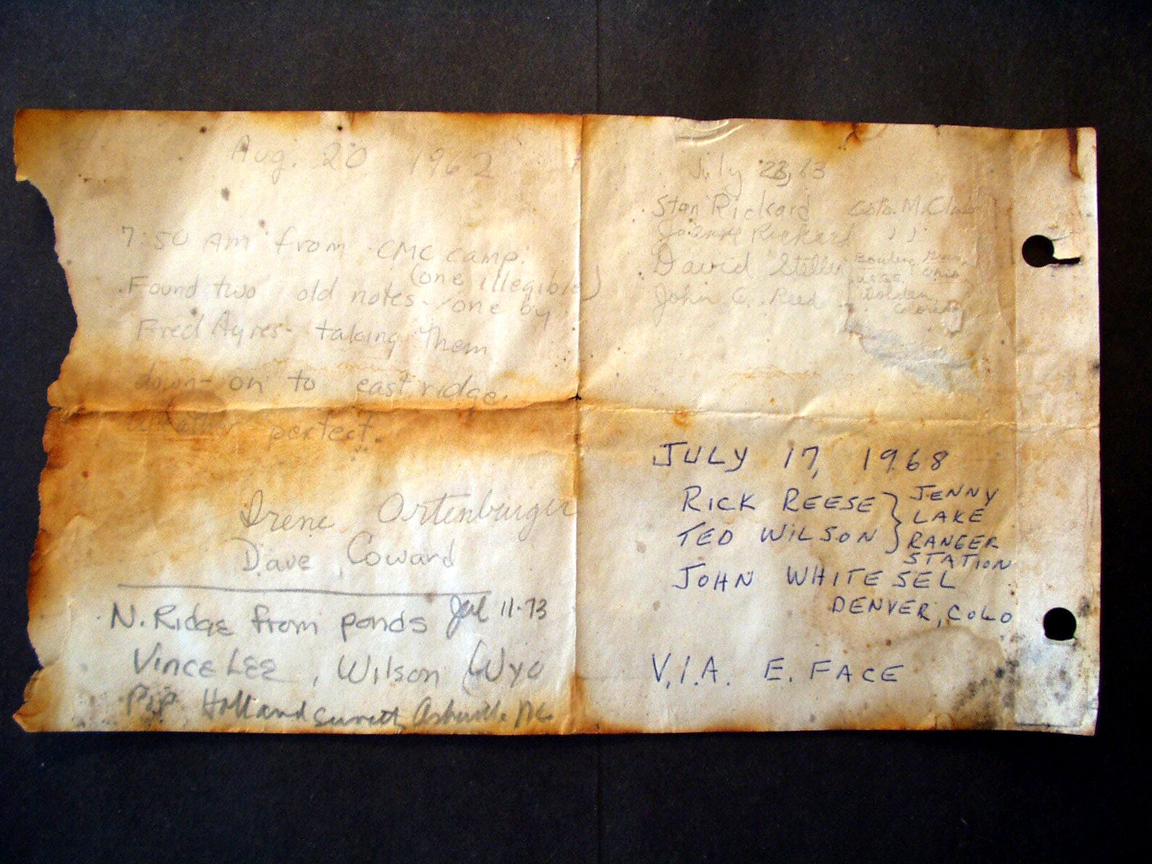 Aug. 20 1962
7:50 am from CMC camp.
Found two old notes - one by (one illegible)
Fred Ayres - taking them
down - on to east ridge.
Weather perfect.
Irene Ortenburger
Dave Coward
N. Ridge from ponds Jul 11-73
Vince Lee, Wilson (Wyo
Pip Holland Asheville NC
July 23, 63
Stan Rickard Colo. M. Club
Joanne Rickard " "
David Bowling Green, Ohio
John C. Reed USGS Golden Colorado
JULY 17, 1968
RICK REESE } JENNY LAKE
TED WILSON } RANGER STATION
JOHN WHITESEL
DENVER, COLO
V.I.A. E. FACE